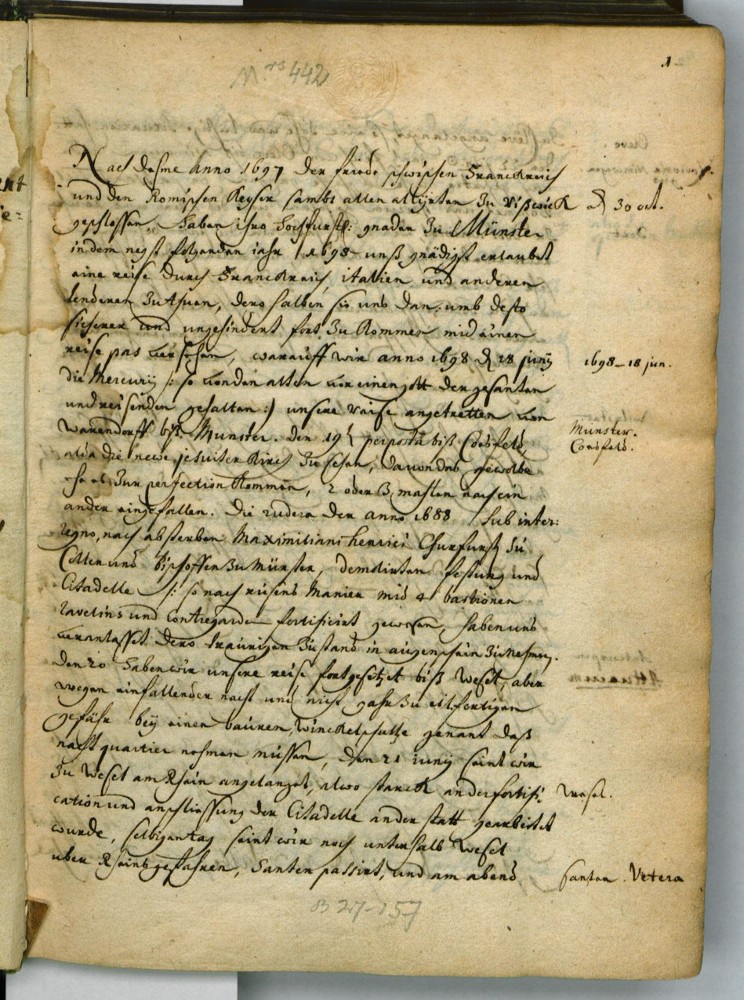 N rs 442
1
Nach deme Anno 1697 der friede zwischen Franckreich
und den Römischen Keyser sambt allen alijrten zu Rißwick
d 30 oct.
geschlossen, haben ihro hochfurstl: gnaden zu Münster
in dem negst folgenden iahr 1698 unß gnädigst erlaubet
eine reise durch Franckreich, italien und anderen
lenderen zu thuen, dero halben sie uns dan, umb desto
sicherer und ungehindert fort zu kommen mit einen
reise pas versehen, warauff wir anno 1698 d 18 junij
1698 - 18 jun.
die Mercurij /: so von den alten vor einen gott der gesanten
und reisenden gehalten :/ unsere reise angetretten von
Warendorff biß Munster. den 19t per posta biß Coesfeld,
Münster.
Coesfeld.
alda die newe jesuiter kirch zu sehen, davon das gewölbe
so es zur perfection kommen, 2 oder 3 mahlen nach ein
ander eingefallen. Die rudera der anno 1688 sub inter:
regno, nach absterben Maximiliani Henrici Churfurst zu
Collen und Bischoffen zu Münster, demolirten festung und
Citadelle /: so nach Manier mit 4 bastionen
ravelins und contregarden fortificirt gewesen, haben uns
veranlasset dero traurigen zustand in augenschein zu nehmen.
den 20 haben wir unsere reise fortgesetzet biß Wesel, aber
wegen einfallender nacht und nicht gahr zu eilfertigen
gefähr bey einen bauren, Winckelhutte genant daß
nacht quartier nehmen müssen, den 21 junij seint wir
zu Wesel am Rhein angelanget, alwo starck an der fortifi:
Wesel.
cation und anschliessung der Citadelle an der statt gearbeitet
wurde, selbigen tag seint wir noch unterhalb Wesel
uber Rhein gefahren, Santen passirt, und am abend
Santen. Vetera
B 27-157